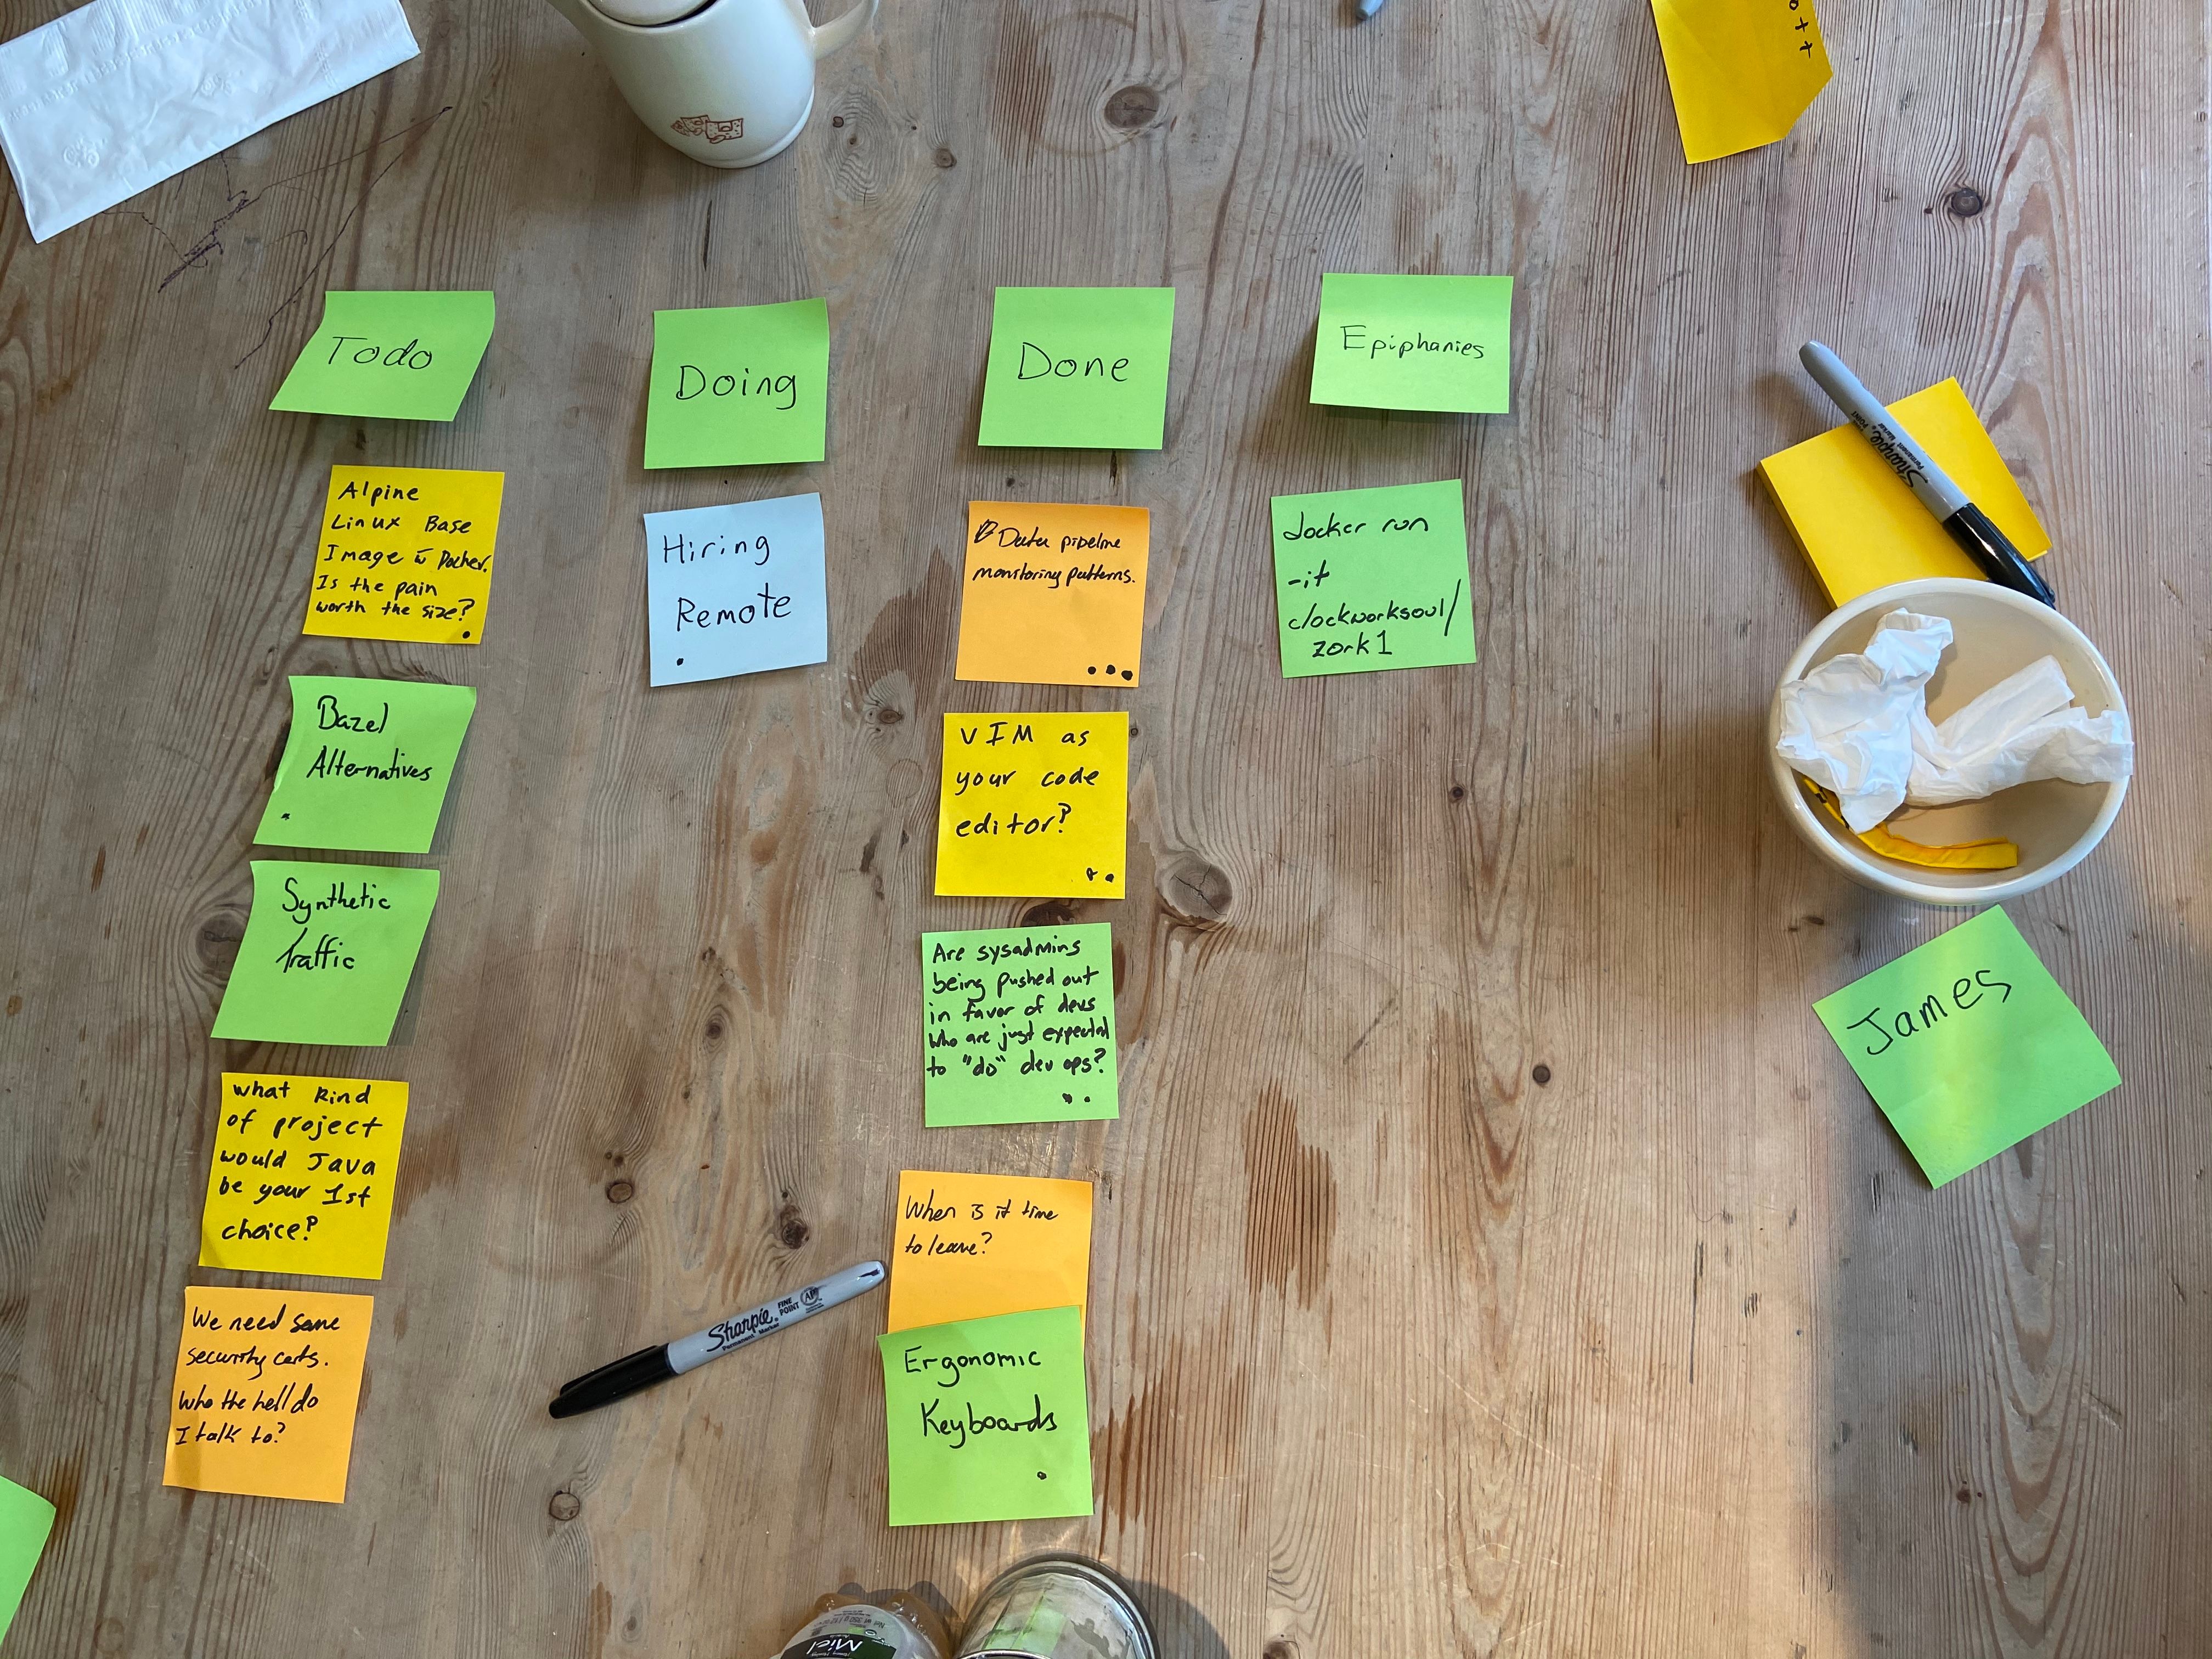 Todo
Alpine
Linux Base
Image w̄ Docker.
Is the pain
worth the size?
Bazel
Alternatives
Synthetic
Traffic
what kind
of project
would Java
be your 1st
choice?
We need some
security certs.
Who the hell do
I talk to?
Doing
Hiring
Remote
Done
Data pipeline
monitoring patterns.
VIM as
your code
editor?
Are sysadmins
being pushed out
in favor of devs
who are just expected
to "do" dev ops?
When is it time
to leave?
Ergonomic
Keyboards
Epiphanies
docker run
-it
clockworksoul/
zork1
James
Sharpie
FINE
POINT
Permanent Marker
Sharpie
Permanent Marker
Miel